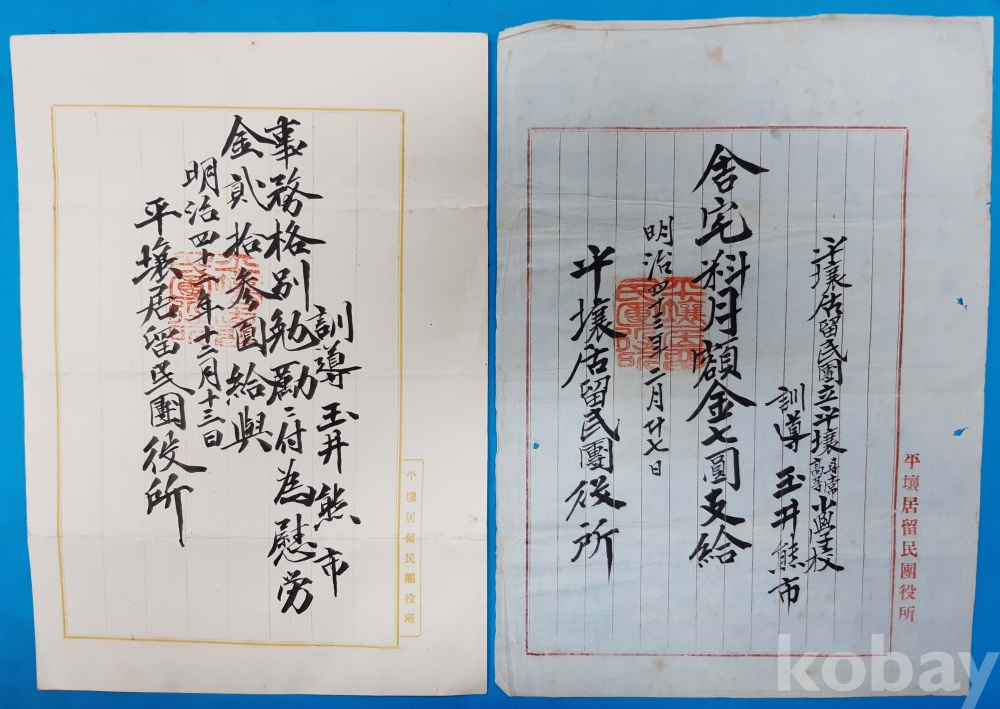 訓導 玉井熊市
事務格別勉勵ニ付為慰労
金貳拾参圓給與
明治四十二年十二月十三日
平壤居留民團役所
平壤居留民團役所
平壤居留民團立平壤尋常高等小學校
訓導 玉井熊市
舎宅料月額金七圓支給
明治四十三年二月廿七日
平壤居留民團役所
平壤居留民團役所
kobay